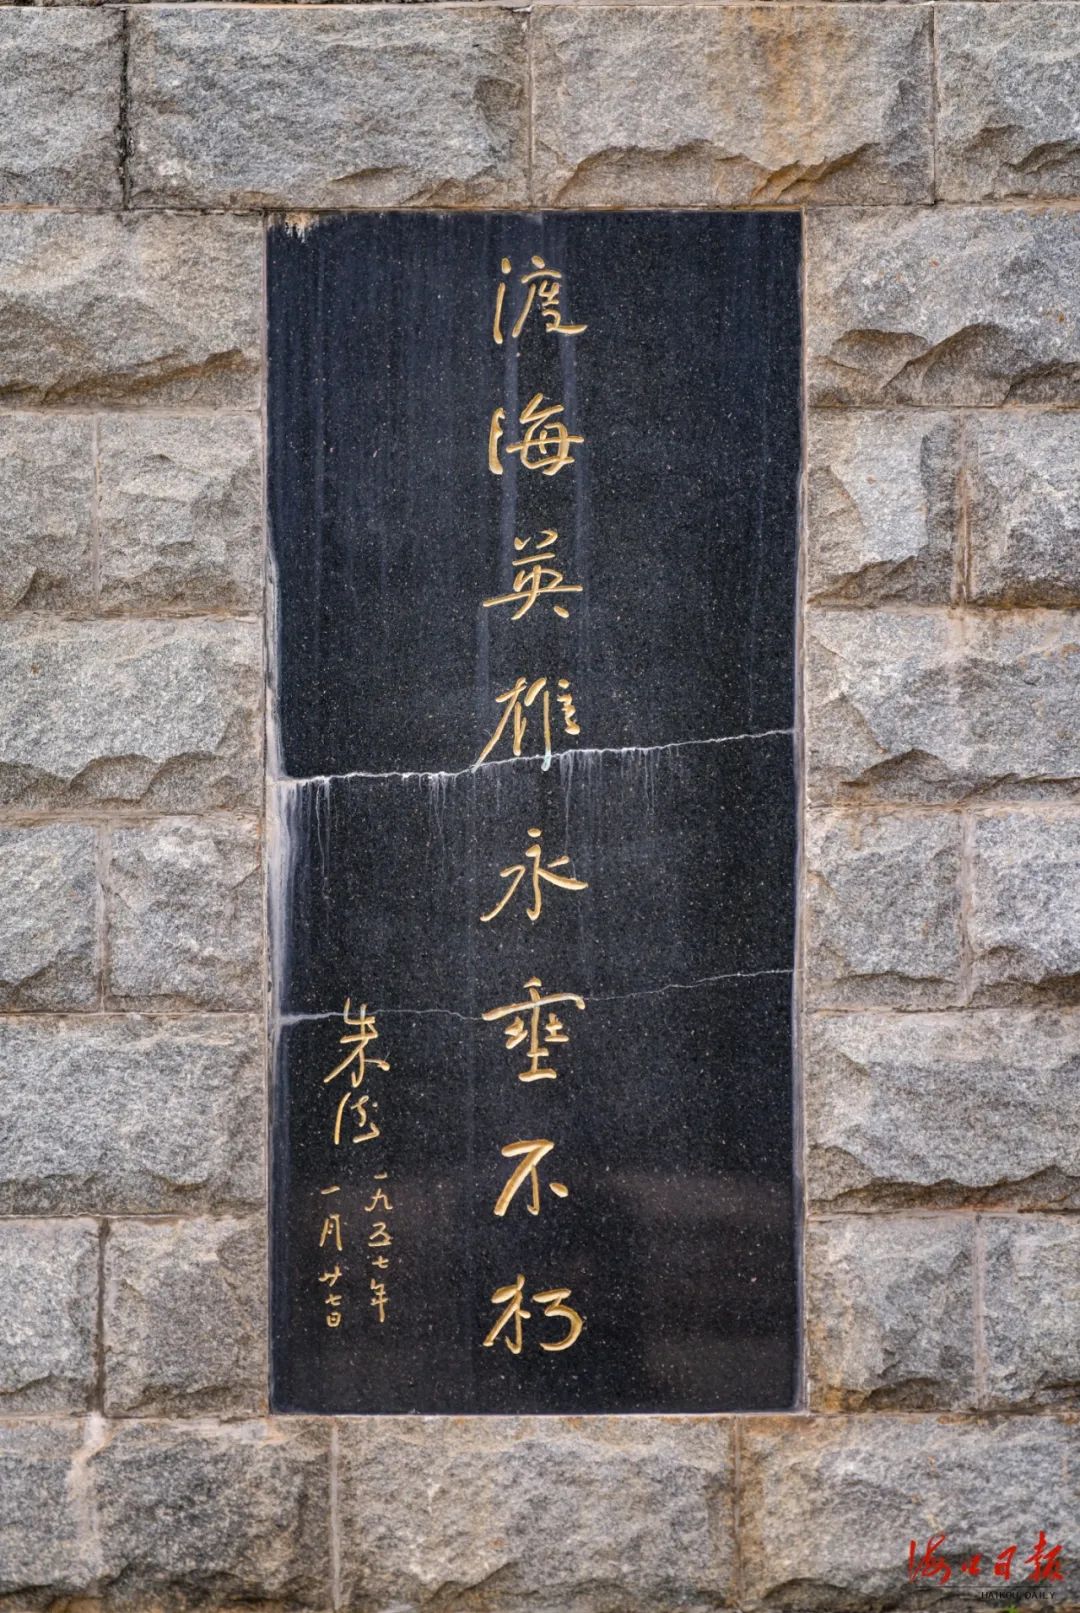 渡海英雄永垂不朽
朱德
一九五七年
一月廿七日
海口日报
HAIKOU DAILY